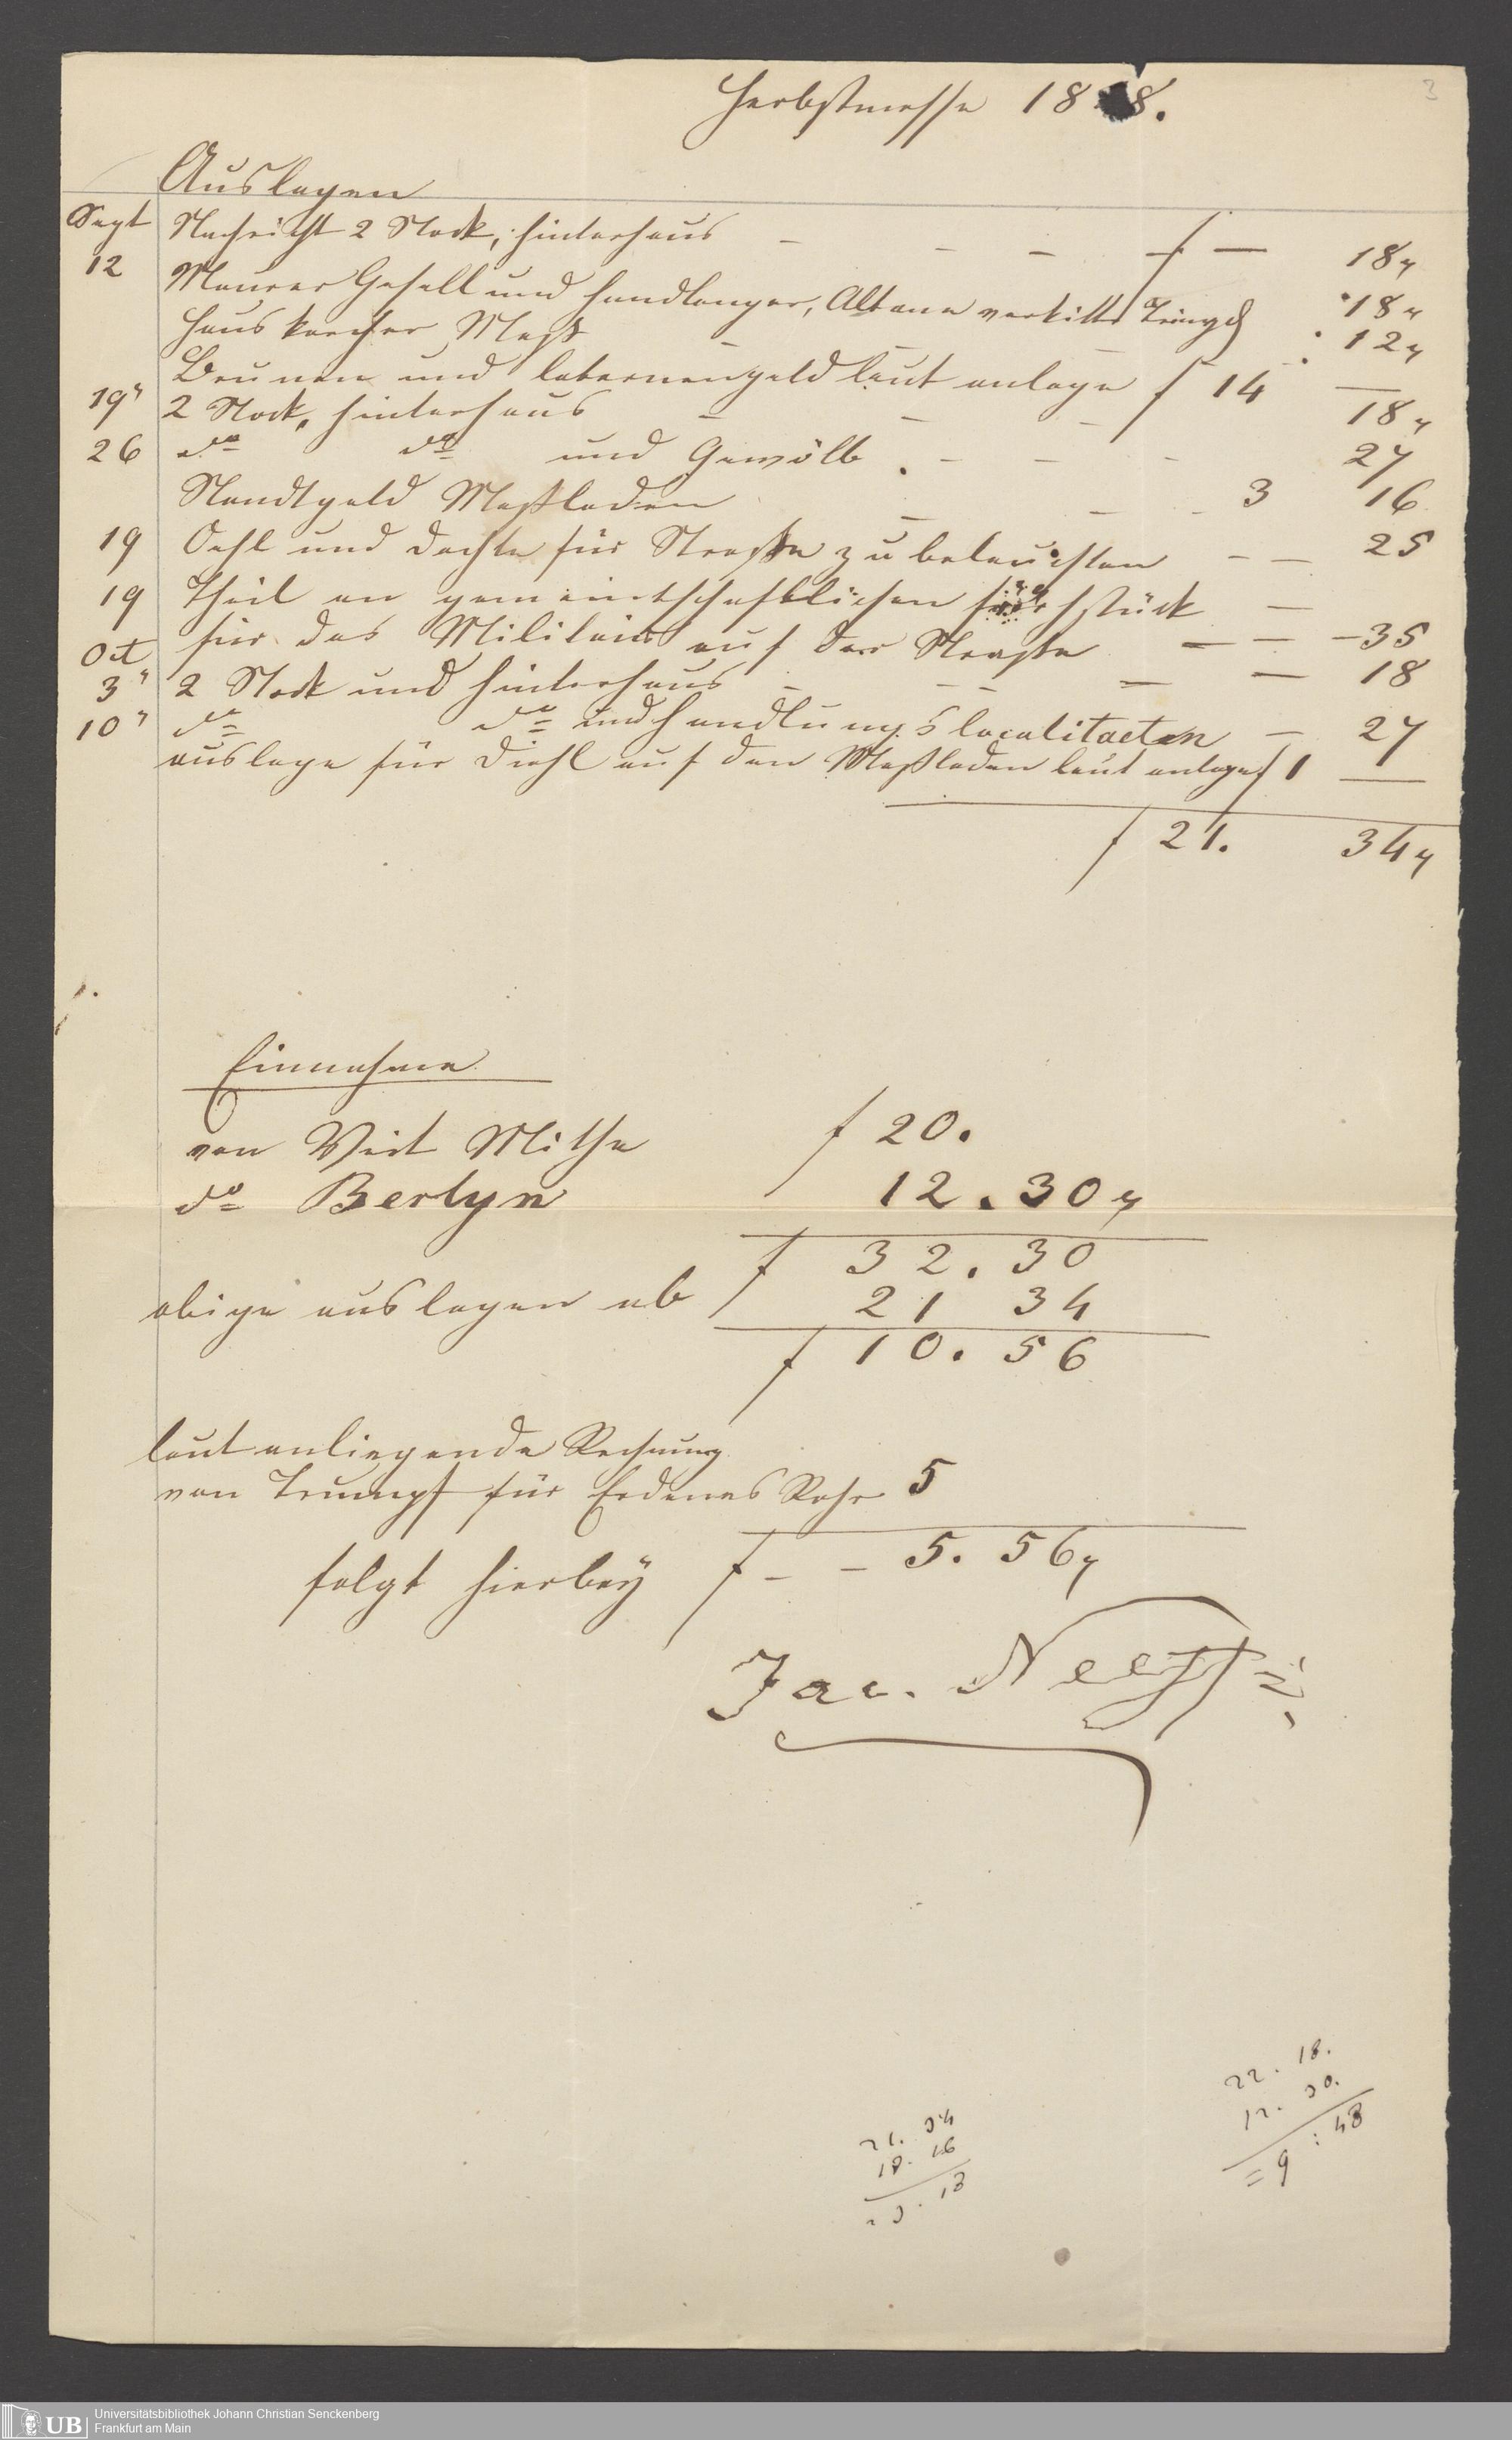 Herbstmesse 18 8.
3
Auslagen
Sept Nachricht 2 Stock, hinterhaus – – – f – 18 x
12 Maurer Gesell und handlanger, Altane verkitte Tringd 18 x
Haus Mess – – 12 x
Brunnen und laternengeld laut anlage f 14 —
19" 2 Stock, hinterhaus – – – 18 x
26 do do und Gewölb . – – – 27
Standtgeld Meßladen – – – 3 16
19 Oehl und dochte für Straße zu beleuchten – – 25
19 Theil an gemeintschaftlichen früchstück –
für das Militair auf der Straße – – – 35
Oct
3" 2 Stock und hinterhaus – – – – – 18
10" do do und handlungslocalitaeten – 27
auslage für Diehl auf den Meßladen laut anlage f 1 —
f 21. 34 x
Einnahme
von Veit Mithe f 20.
do Berlyn 12.30 x
f 32.30
obige auslagen ab f 21 34
f 10.56
laut anliegende Rechnung
von Trumpf für Erdenes Rohr 5
folgt hierbey f – – 5.56 x
Jac. Neeff
22. 18.
12. 30.
= 9 : 48
21. 34
18. 16
3. 18
UB Universitätsbibliothek Johann Christian Senckenberg
Frankfurt am Main